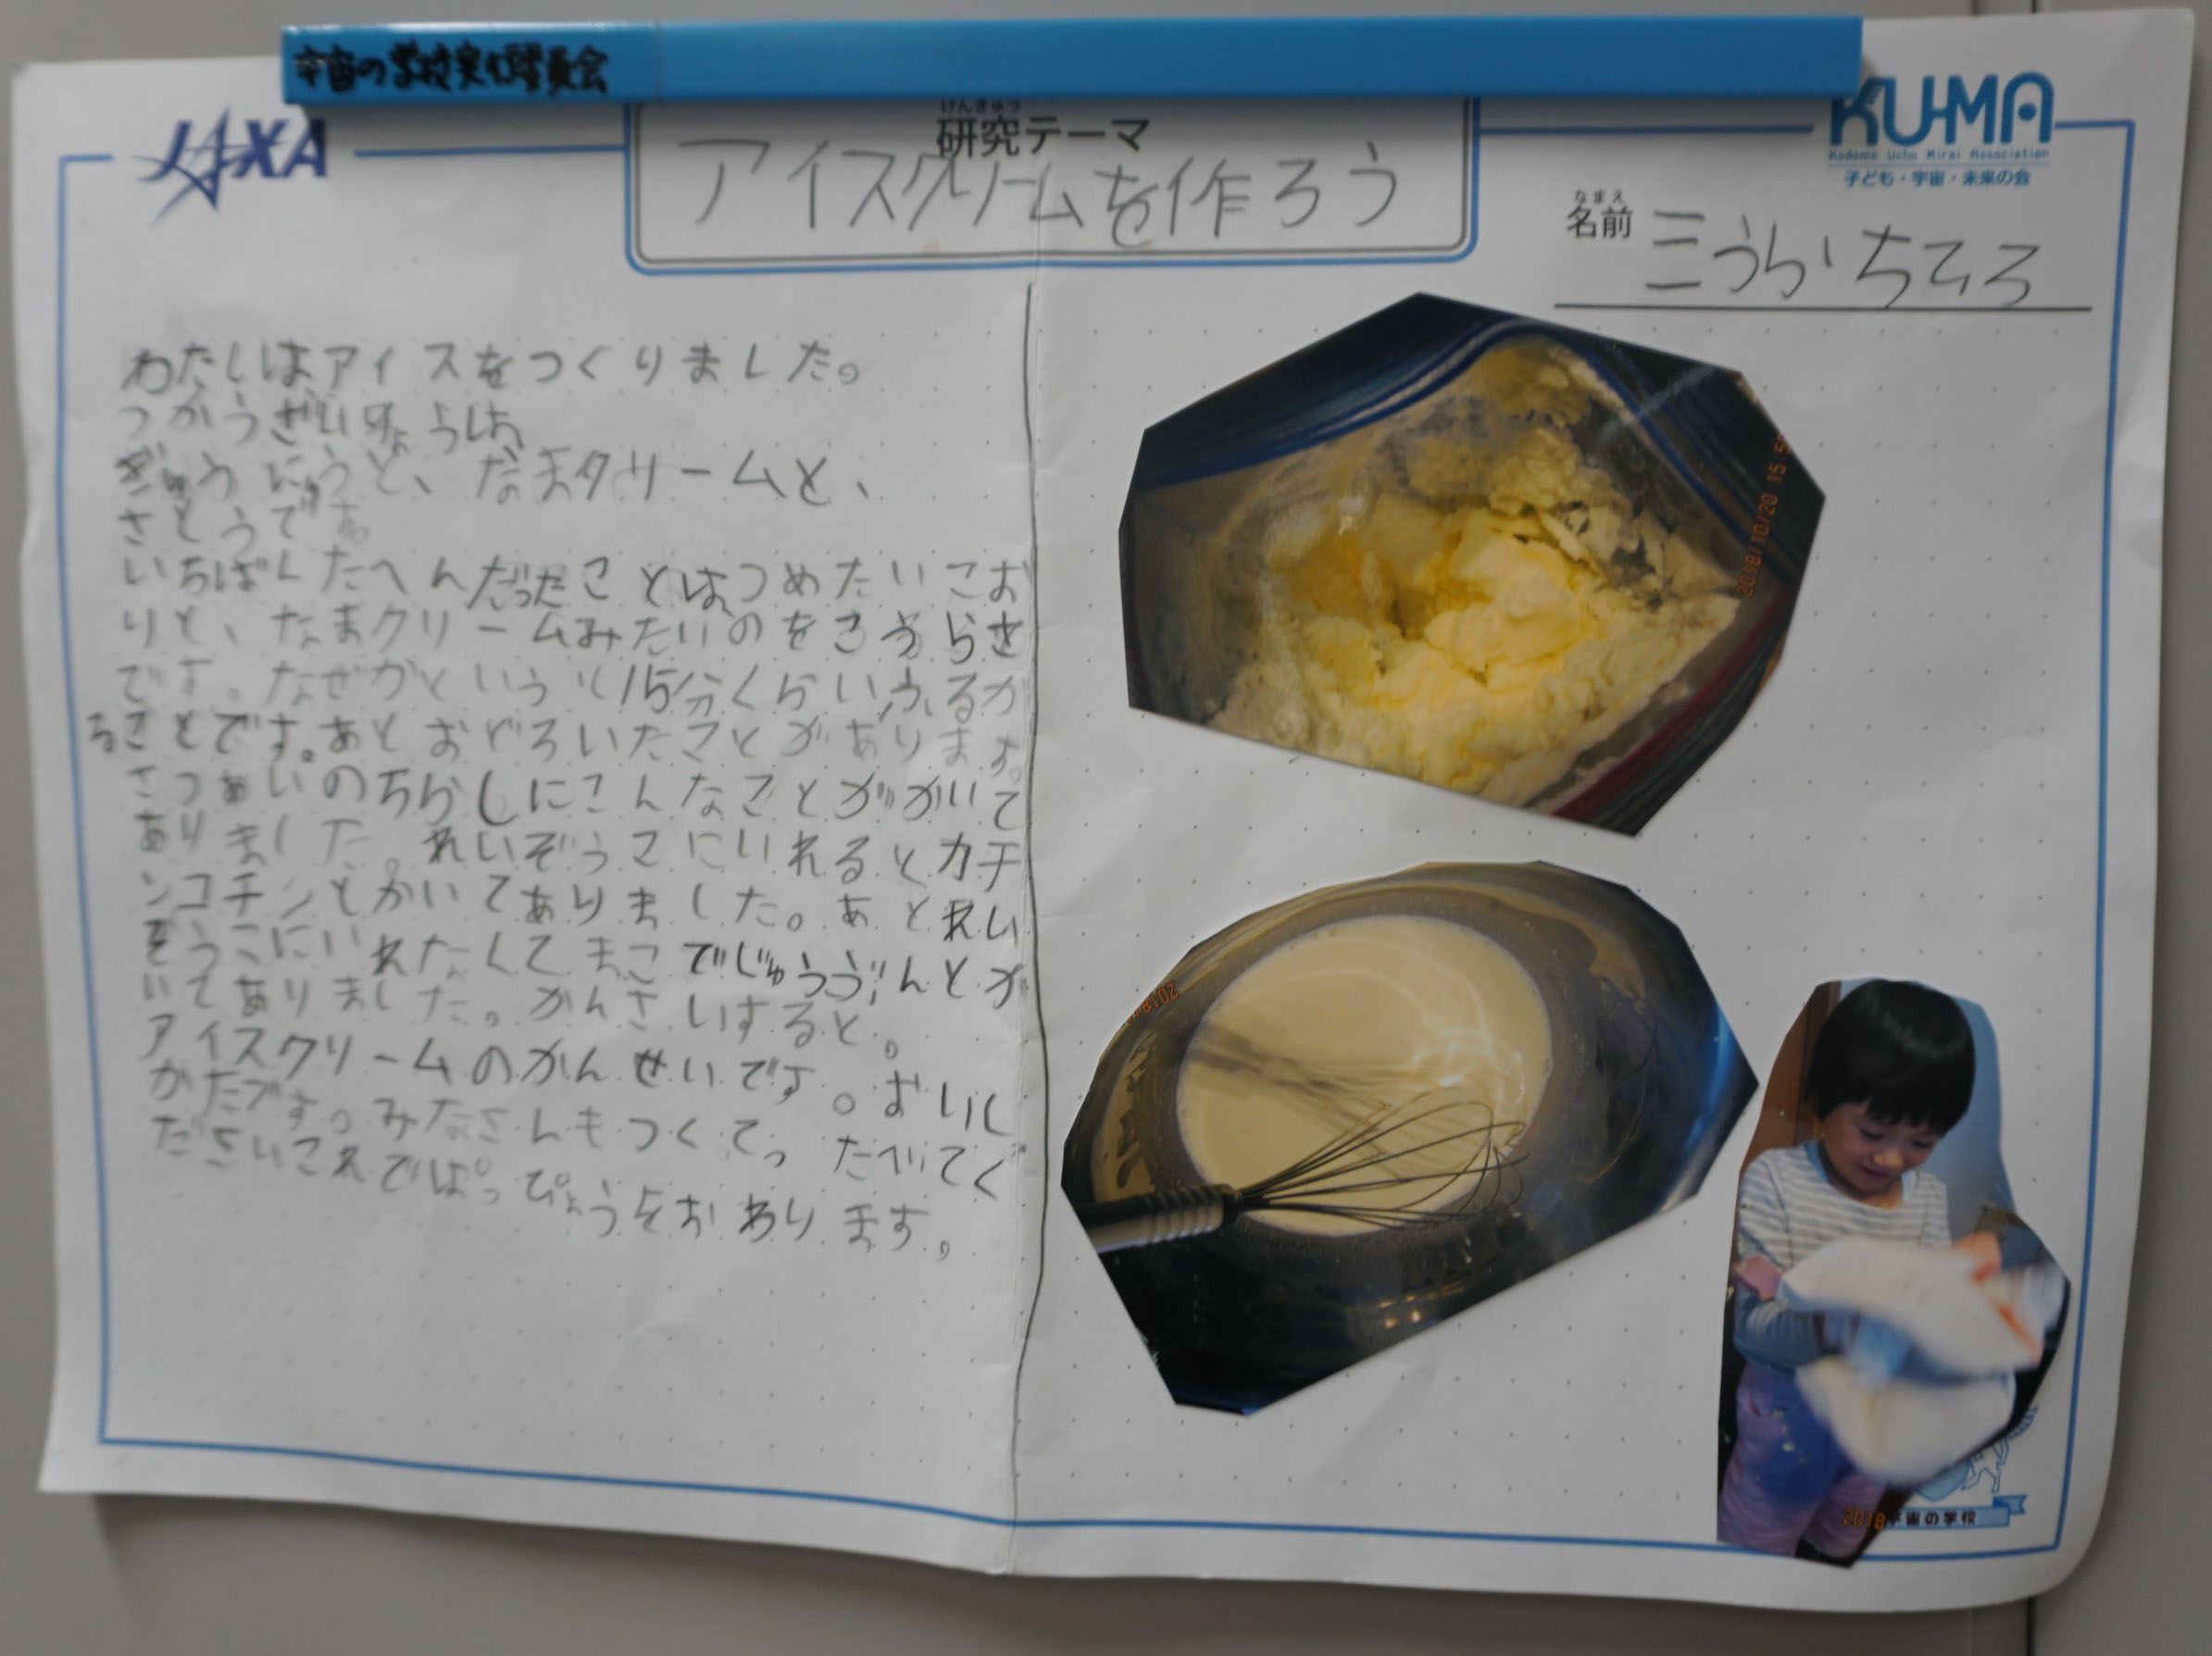 宇宙の学校実行委員会
JAXA
KU-MA
Kodomo Uchu Mirai Association
子ども・宇宙・未来の会
けんきゅう
研究テーマ
アイスクリームを作ろう
なまえ
名前
三うらちひろ
わたしはアイスをつくりました。
つかうざいりょうは、
ぎゅうにゅうと、なまクリームと、
さとうです。
いちばんたへんだったことは、つめたいこお
りと、なまクリームみたいのを
です。なぜかというと15分くらいふるか
ることです。あとおどろいたことがあります。
のちらしにこんなことががいて
ありました。れいぞうこにいれるとカチ
ンコチンとかいてありました。あとれい
ぞうこにいれなくて まこでじゅうぶんとか
いてありました。かんさいすると。
アイスクリームのかんせいです。おいし
かたです。みなさんもつくてったべてく
ださいこれではっぴょうをおわります。
2018/10/20 15:5
2018
2018宇宙の学校